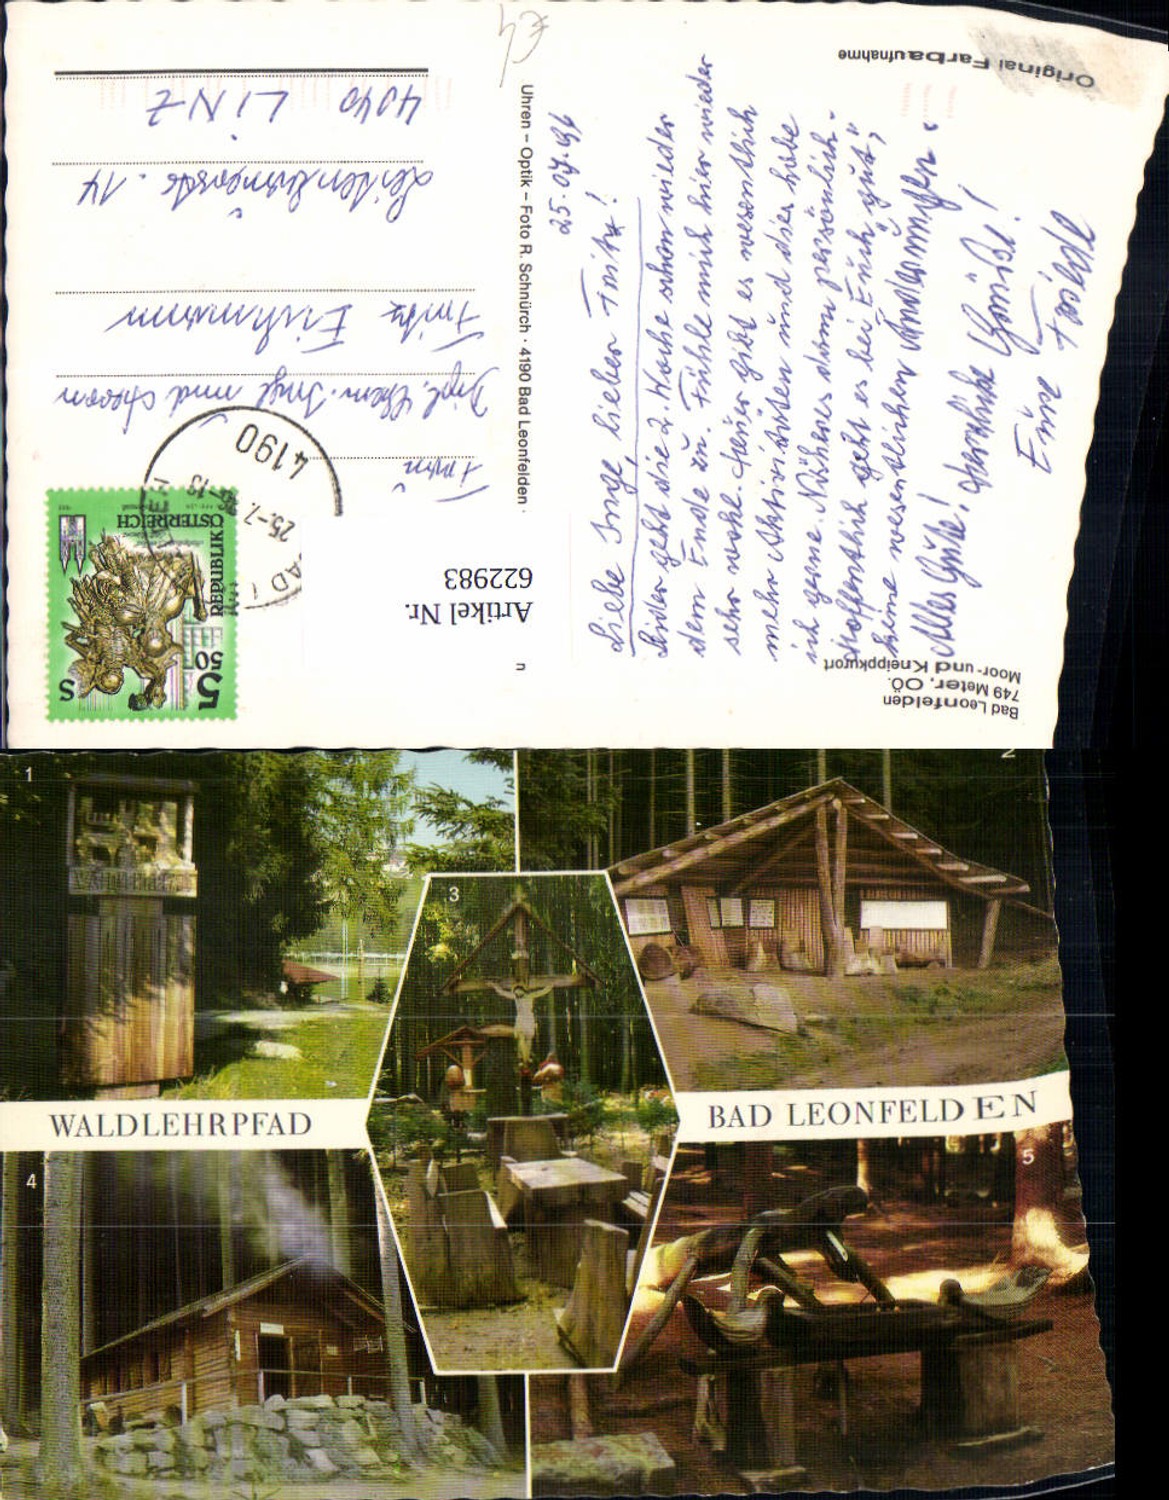 Original Farbaufnahme
25.07.96
Liebe Inge, lieber Fritz!
Leider geht die 2. Woche schon wieder
dem Ende zu. Fühle mich hier wieder
sehr wohl. Heuer gibt es wesentlich
mehr Aktivitäten und dies habe
ich gerne. Näheres dann persönlich.
Hoffentlich geht es bei Euch gut,
keine wesentlichen Änderungen.
Alles Gute! Herzliche Grüße!
Eure Friedl
Bad Leonfelden
749 Meter, OÖ.
Moor- und Kneippkurort
Uhren – Optik – Foto R. Schnürch · 4190 Bad Leonfelden ·
Artikel Nr.
622983
REPUBLIK
ÖSTERREICH
S 5 50
4190
25.-7.
Dipl. Inge und Herrn
Fritz
14
4040 LINZ
1
2
3
WALDLEHRPFAD
BAD LEONFELDEN
4
5